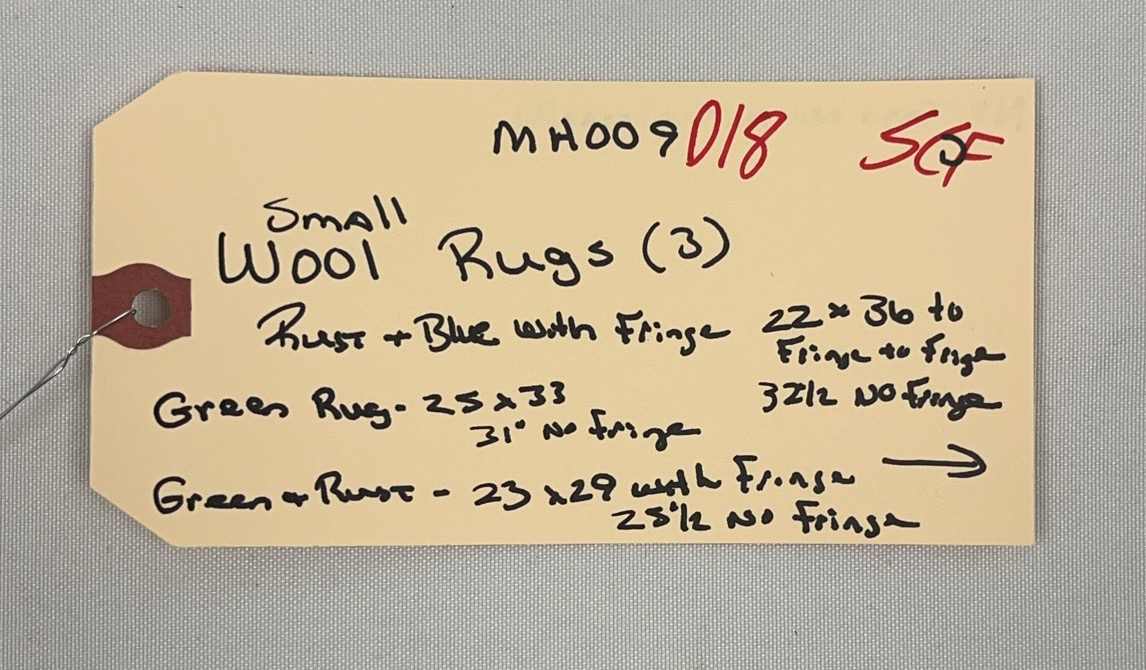 MH009 D18 SCF
Small
Wool Rugs (3)
Rust + Blue with Fringe 22 x 36 to
Fringe to Fringe
32 1/2 NO Fringe
Green Rug - 25 x 33
31" No Fringe
Green + Rust - 23 x 29 with Fringe →
25 1/2 No Fringe